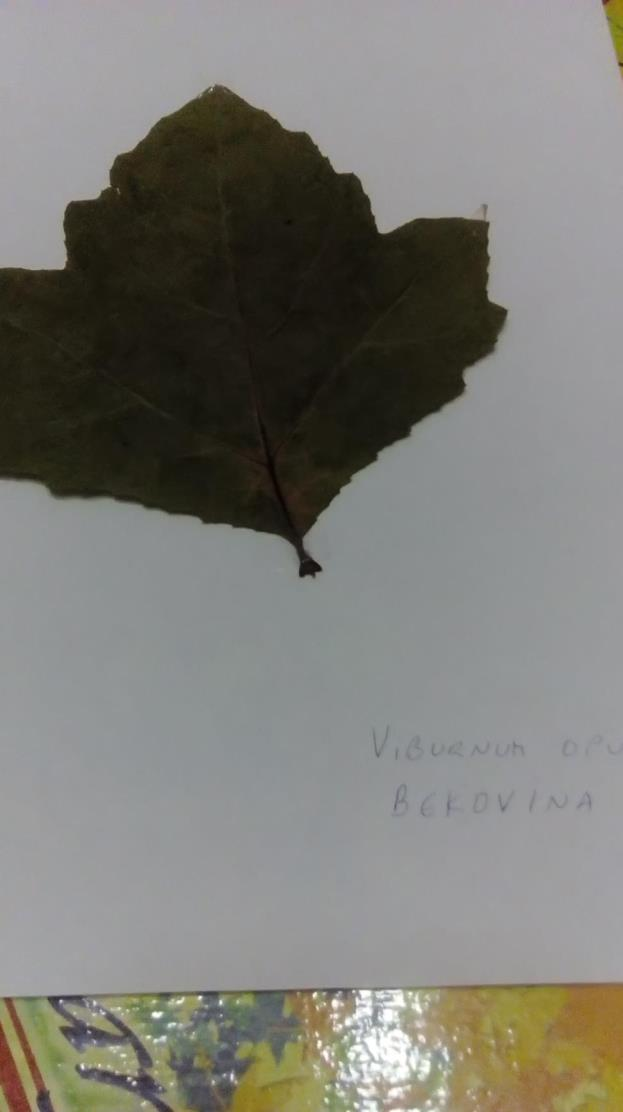 VIBURNUM OPU
BEKOVINA